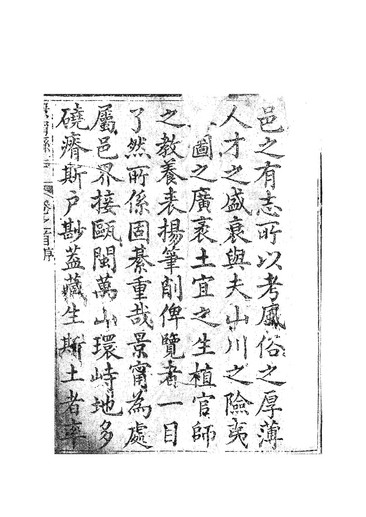 邑之有志所以考風俗之厚薄
人才之盛衰與夫山川之險夷
啚之廣袤土宜之生植官師
之教養表揚筆削俾覽者一目
了然所係固綦重哉景甯為處
屬邑界接甌閩萬山環峙地多
磽瘠斯戶尠葢藏生斯土者率